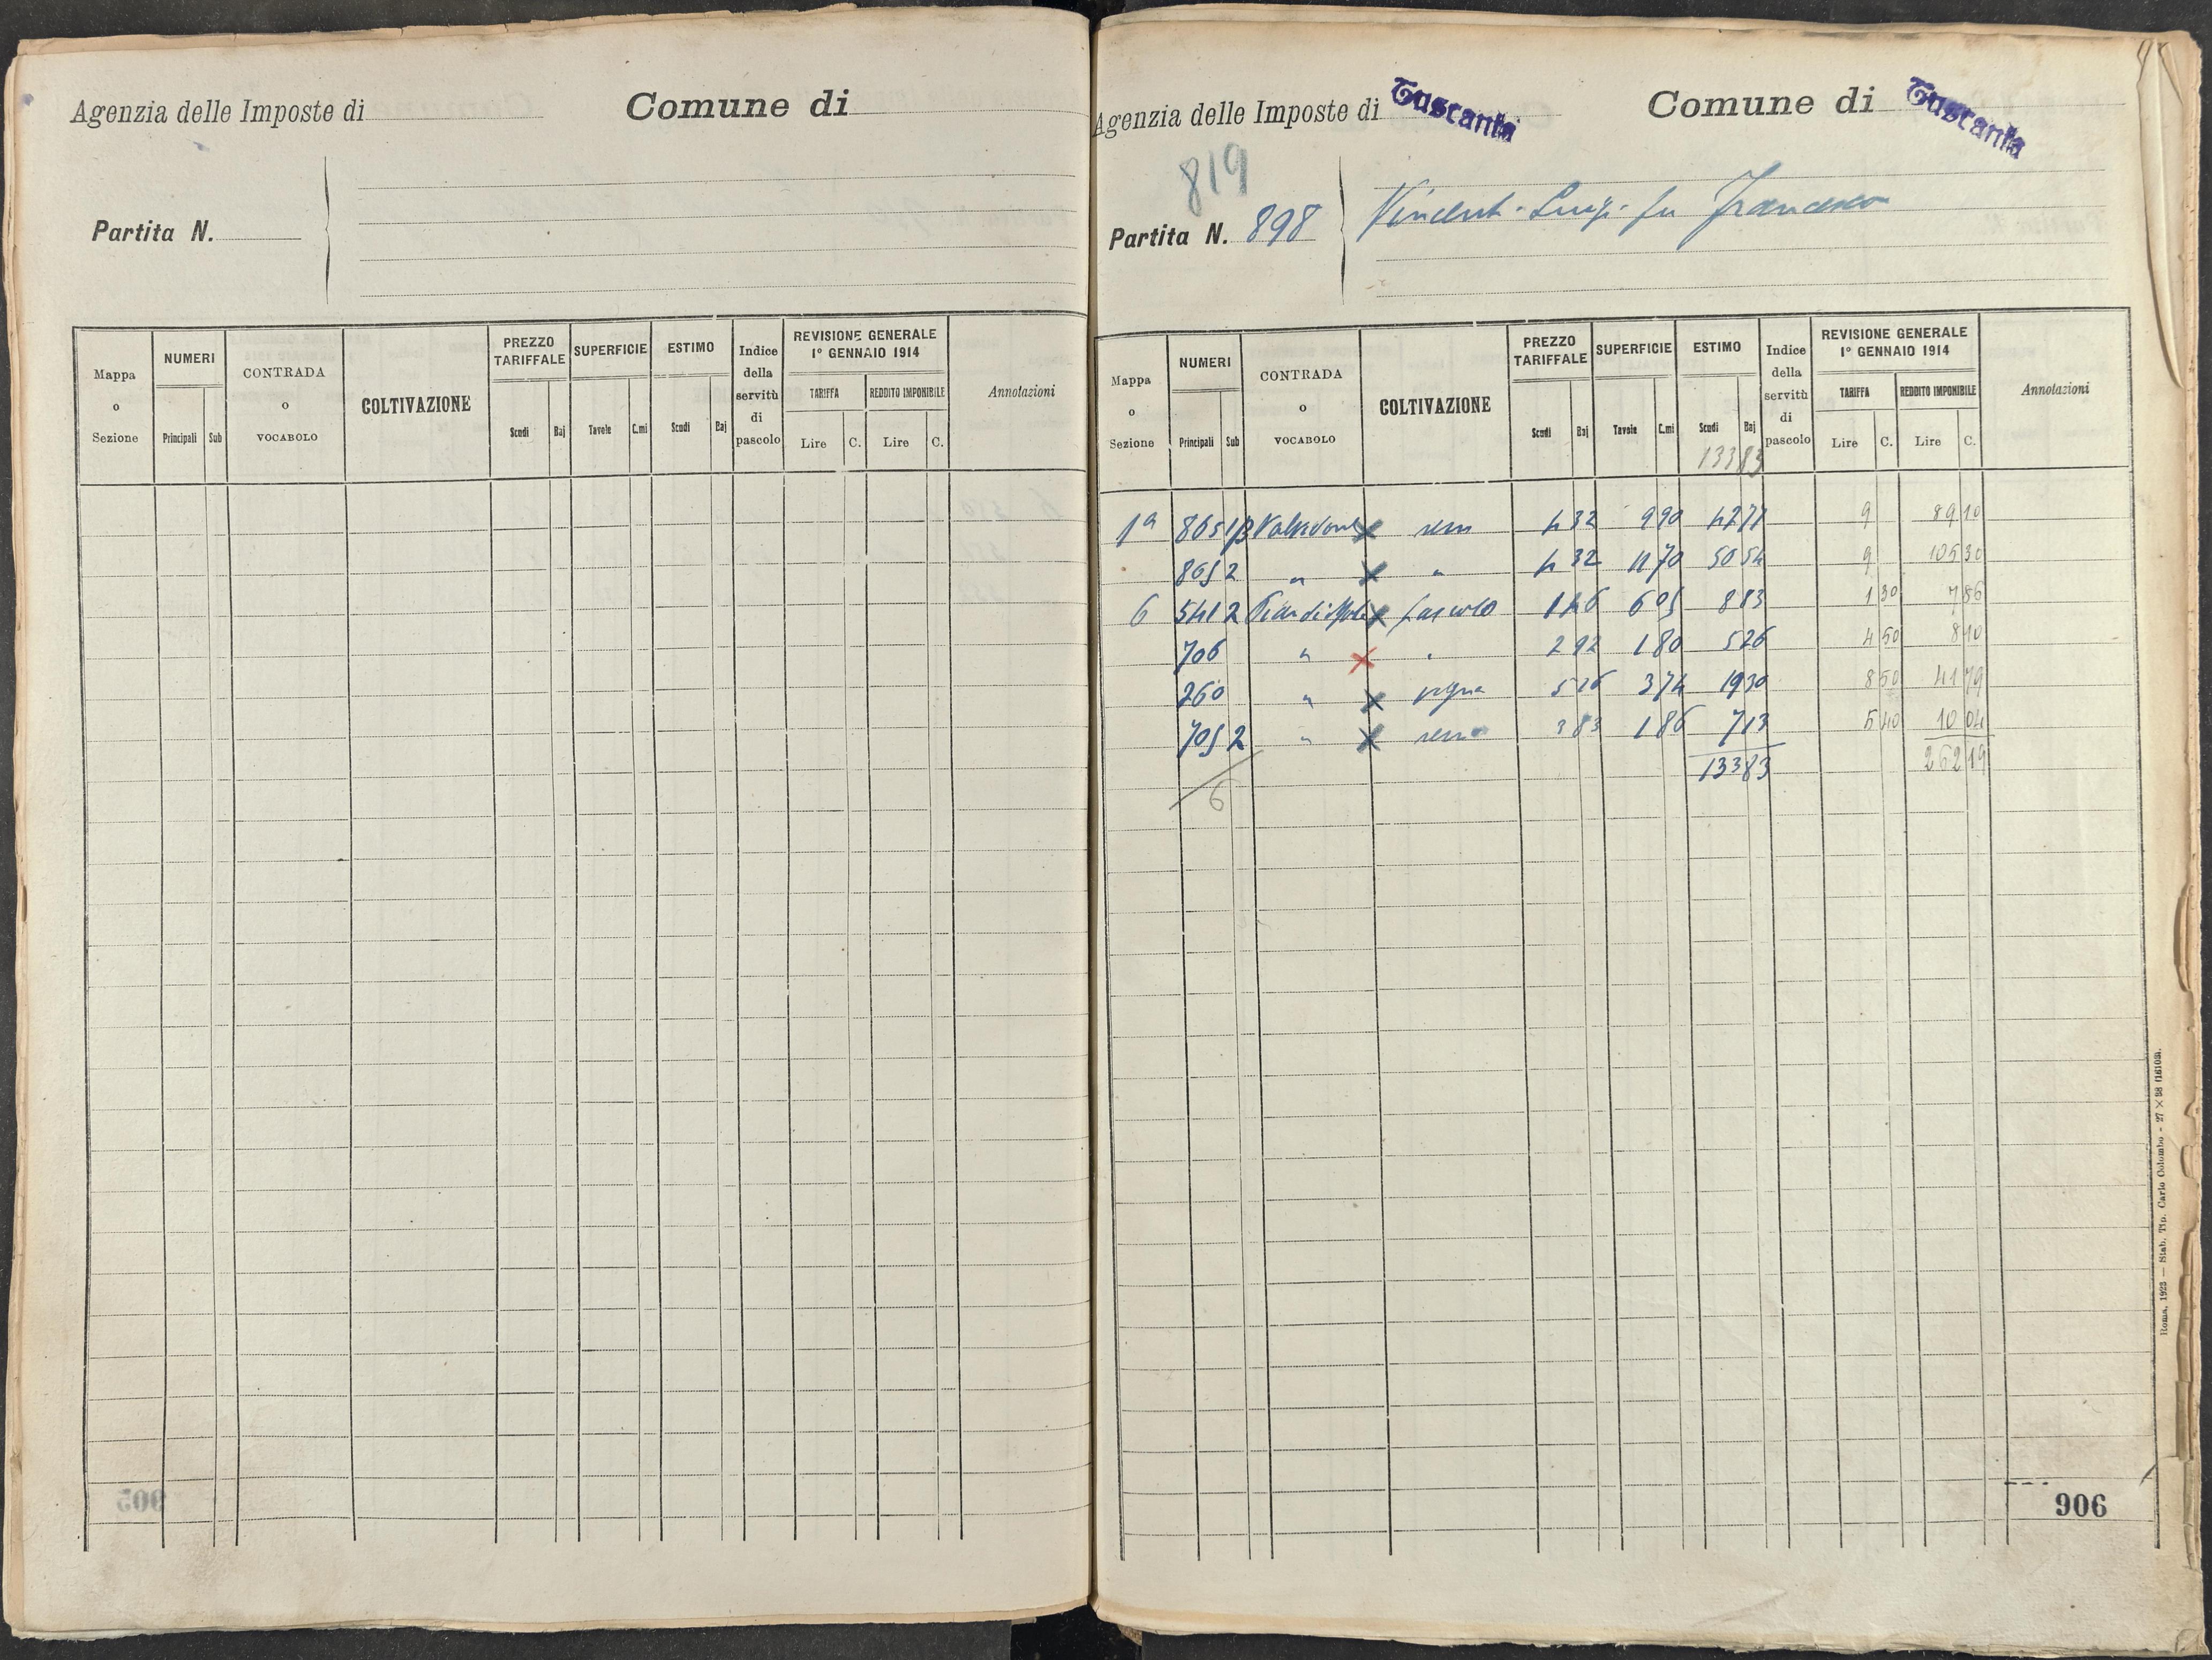 Agenzia delle Imposte di
Comune di
Partita N.
Mappa o Sezione
NUMERI
Principali
Sub
CONTRADA o VOCABOLO
COLTIVAZIONE
PREZZO TARIFFALE
Scudi
Baj
SUPERFICIE
Tavole
C.mi
ESTIMO
Scudi
Baj
Indice della servitù di pascolo
REVISIONE GENERALE 1° GENNAIO 1914
TARIFFA
Lire
C.
REDDITO IMPONIBILE
Lire
C.
Annotazioni
905
Agenzia delle Imposte di Tuscania
Comune di Tuscania
819
Partita N. 898
Luigi fu Francesco
Mappa o Sezione
NUMERI
Principali
Sub
CONTRADA o VOCABOLO
COLTIVAZIONE
PREZZO TARIFFALE
Scudi
Baj
SUPERFICIE
Tavole
C.mi
ESTIMO
Scudi
Baj
13383
Indice della servitù di pascolo
REVISIONE GENERALE 1° GENNAIO 1914
TARIFFA
Lire
C.
REDDITO IMPONIBILE
Lire
C.
Annotazioni
1a 865 x 4 32 9 90 42 77 9 89 10
865 2 " x " 4 32 11 70 50 54 9 105 30
6 541 2 x pascolo 1 46 6 05 8 83 1 30 7 86
706 " x " 2 92 1 80 5 26 4 50 8 10
260 " x vigna 5 16 3 74 19 30 8 50 41 79
705 2 " x 3 83 1 86 7 13 5 40 10 04
6 133 83 262 19
Roma, 1923 — Stab. Tip. Carlo Colombo - 27 × 38 (16103).
906